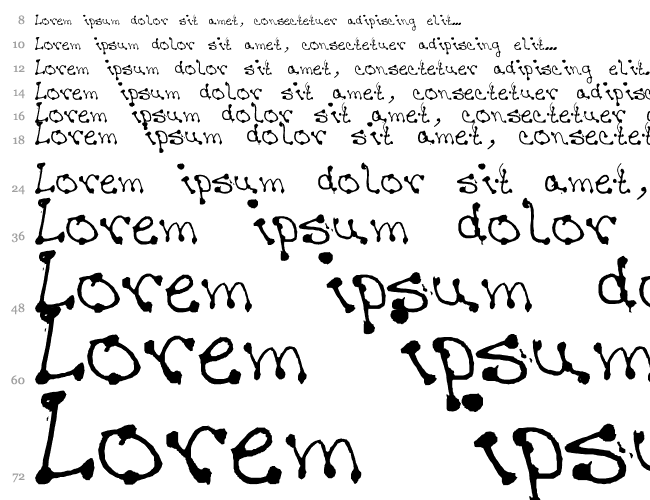 8 Lorem ipsum dolor sit amet, consectetuer adipiscing elit...
10 Lorem ipsum dolor sit amet, consectetuer adipiscing elit...
12 Lorem ipsum dolor sit amet, consectetuer adipiscing elit.
14 Lorem ipsum dolor sit amet, consectetuer adipisc
16 Lorem ipsum dolor sit amet, consectetuer
18 Lorem ipsum dolor sit amet, consectet
24 Lorem ipsum dolor sit amet,
36 Lorem ipsum dolor
48 Lorem ipsum do
60 Lorem ipsum
72 Lorem ipsu